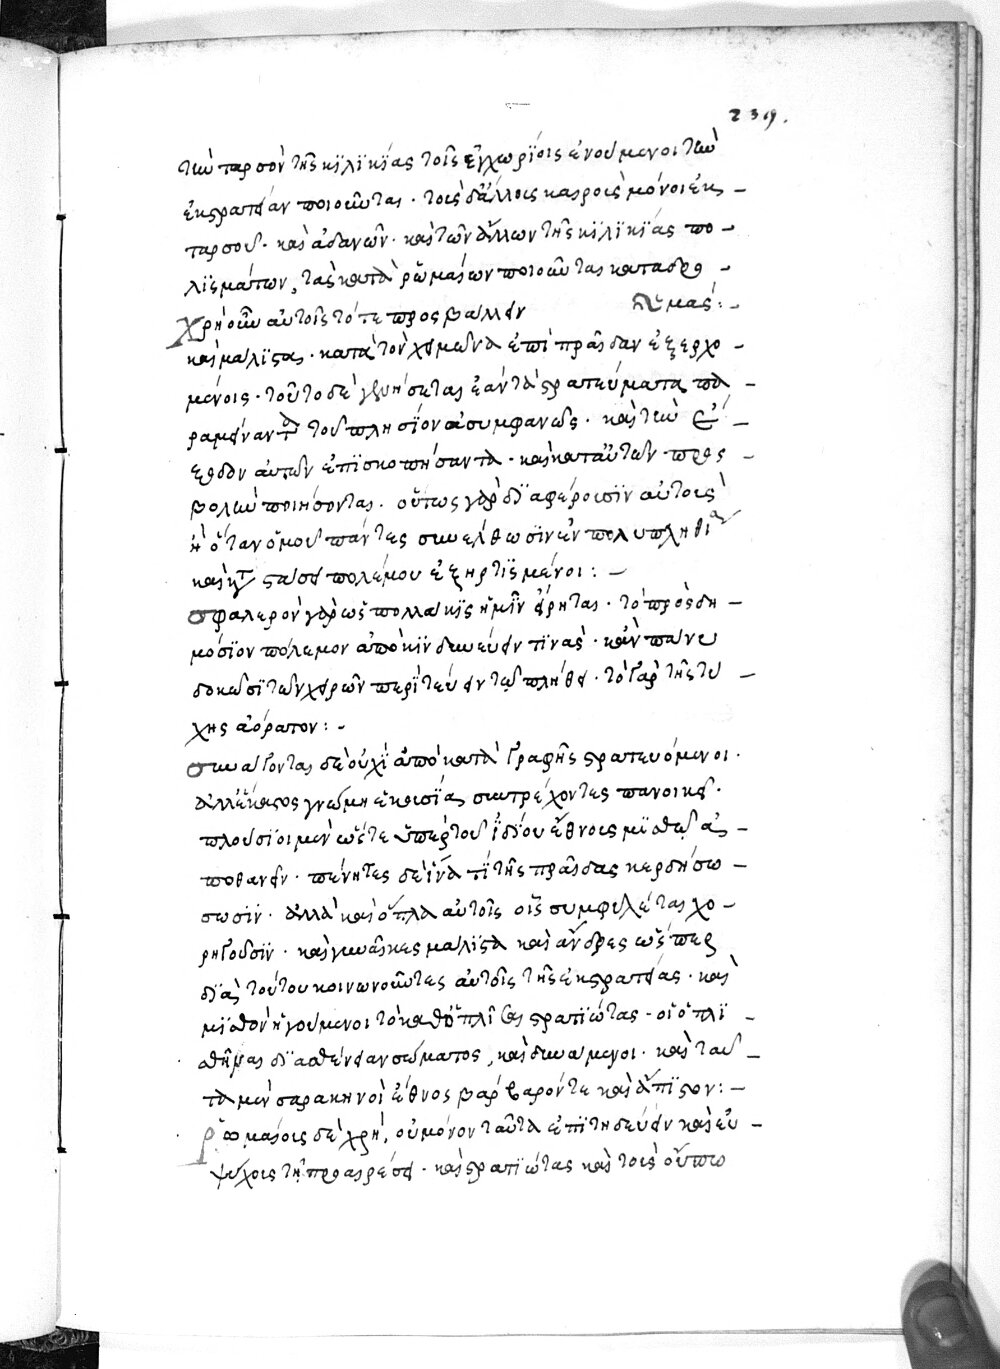 239.
τὴν ταρσὸν τῆς κϊλϊκϊας τοῖς ἐγχωρϊοις ἑνούμενοι τὴν
ἐκστρατείαν ποιοῦνται · τοῖς δ' ἄλλοις καιροῖς μόνοι ἐκ
ταρσοῦ · καὶ ἀδανῶν · καὶ τῶν ἄλλων τῆς κϊλϊκϊας πο
λϊσμάτων, τὰς κατὰ ῥωμαίων ποιοῦνται καταδρο
μάς :
χρὴ οὖν αὐτοῖς τότε προσβαλεῖν
καὶ μάλϊστα · κατὰ τὸν χειμῶνα ἐπὶ πραῖδαν ἐξερχο
μένοις · τοῦτο δὲ γενήσεται ἐὰν τὰ στρατεύματα πα
ραμείναντα που πλησϊον ἀσυμφανῶς · καὶ τὴν
ἔξοδον αὐτῶν ἐπϊσκοπήσαντα · καὶ κατ' αὐτῶν προς
βολὴν ποιήσονται · οὕτως γὰρ δϊαφθείρουσϊν αὐτοὺς
ἢ ὅταν ὁμοῦ πάντες συνέλθωσϊν ἐν πολυπληθία
καὶ πολέμου ἐξηρτϊσμένοι :
σφαλερὸν γὰρ ὡς πολλάκϊς ἡμῖν εἴρηται · τὸ πρὸς δη
μόσϊον πόλεμον ἀποκϊνδυνεύειν τϊνὰς · κἂν πάνυ
δοκῶσϊ τῶν ἐχθρῶν περϊτεύειν τῷ πλήθει · τὸ γὰρ τῆς τύ
χης ἀόρατον :
συνάγονται δὲ οὐχϊ ἀπὸ καταγραφῆς στρατευόμενοι ·
ἀλλ' ἕκαστος γνώμη ἑκουσϊα συντρέχοντες πανοικεί ·
πλούσϊοι μὲν ὥστε ὑπὲρ τοῦ ἰδϊου ἔθνους μϊσθῷ ἀ
ποθανεῖν · πένητες δὲ ἵνα τϊ τῆς πραίδας κερδήσω
σωσϊν · ἀλλὰ καὶ ὅπλα αὐτοῖς οἱ συμφυλέται χο
ρηγοῦσϊν · καὶ γυναῖκες μάλϊστα καὶ ἄνδρες ὥσπερ
δϊὰ τούτου κοινωνοῦντες αὐτοῖς τῆς ἐκστρατείας · καὶ
μϊσθὸν ἡγούμενοι τὸ καθοπλῖσαι στρατϊώτας · οἱ ὁπλϊ
σθῆναι δϊ' ἀσθένειαν σώματος, καὶ δυνάμενοι · καὶ ταῦ
τα μὲν σαρακηνοὶ ἔθνος βάρβαρόν τε καὶ ἄπϊστον :
ῥωμαίοις δὲ χρὴ, οὐ μόνον ταῦτα ἐπϊτηδεύειν καὶ εὐ
ψύχους τῇ προαιρέσει · καὶ στρατϊώτας καὶ τοὺς οὔπω